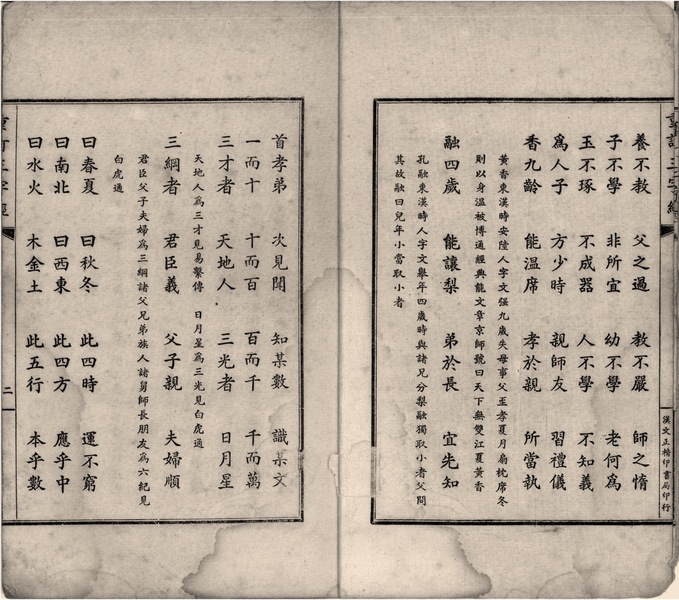 養不教 父之過 教不嚴 師之惰
子不學 非所宜 幼不學 老何為
玉不琢 不成器 人不學 不知義
為人子 方少時 親師友 習禮儀
香九齡 能溫席 孝於親 所當執
黃香東漢時安陸人字文强九歲失母事父至孝夏月扇枕席冬
則以身溫被博通經典能文章京師號曰天下無雙江夏黃香
融四歲 能讓梨 弟於長 宜先知
孔融東漢時人字文舉年四歲時與諸兄分梨融獨取小者父問
其故融曰兒年小當取小者
漢文正楷印書局印行
首孝弟 次見聞 知某數 識某文
一而十 十而百 百而千 千而萬
三才者 天地人 三光者 日月星
天地人為三才見易繫傳 日月星為三光見白虎通
三綱者 君臣義 父子親 夫婦順
君臣父子夫婦為三綱諸父兄弟族人諸舅師長朋友為六紀見
白虎通
曰春夏 曰秋冬 此四時 運不窮
曰南北 曰西東 此四方 應乎中
曰水火 木金土 此五行 本乎數
訂三字經
二